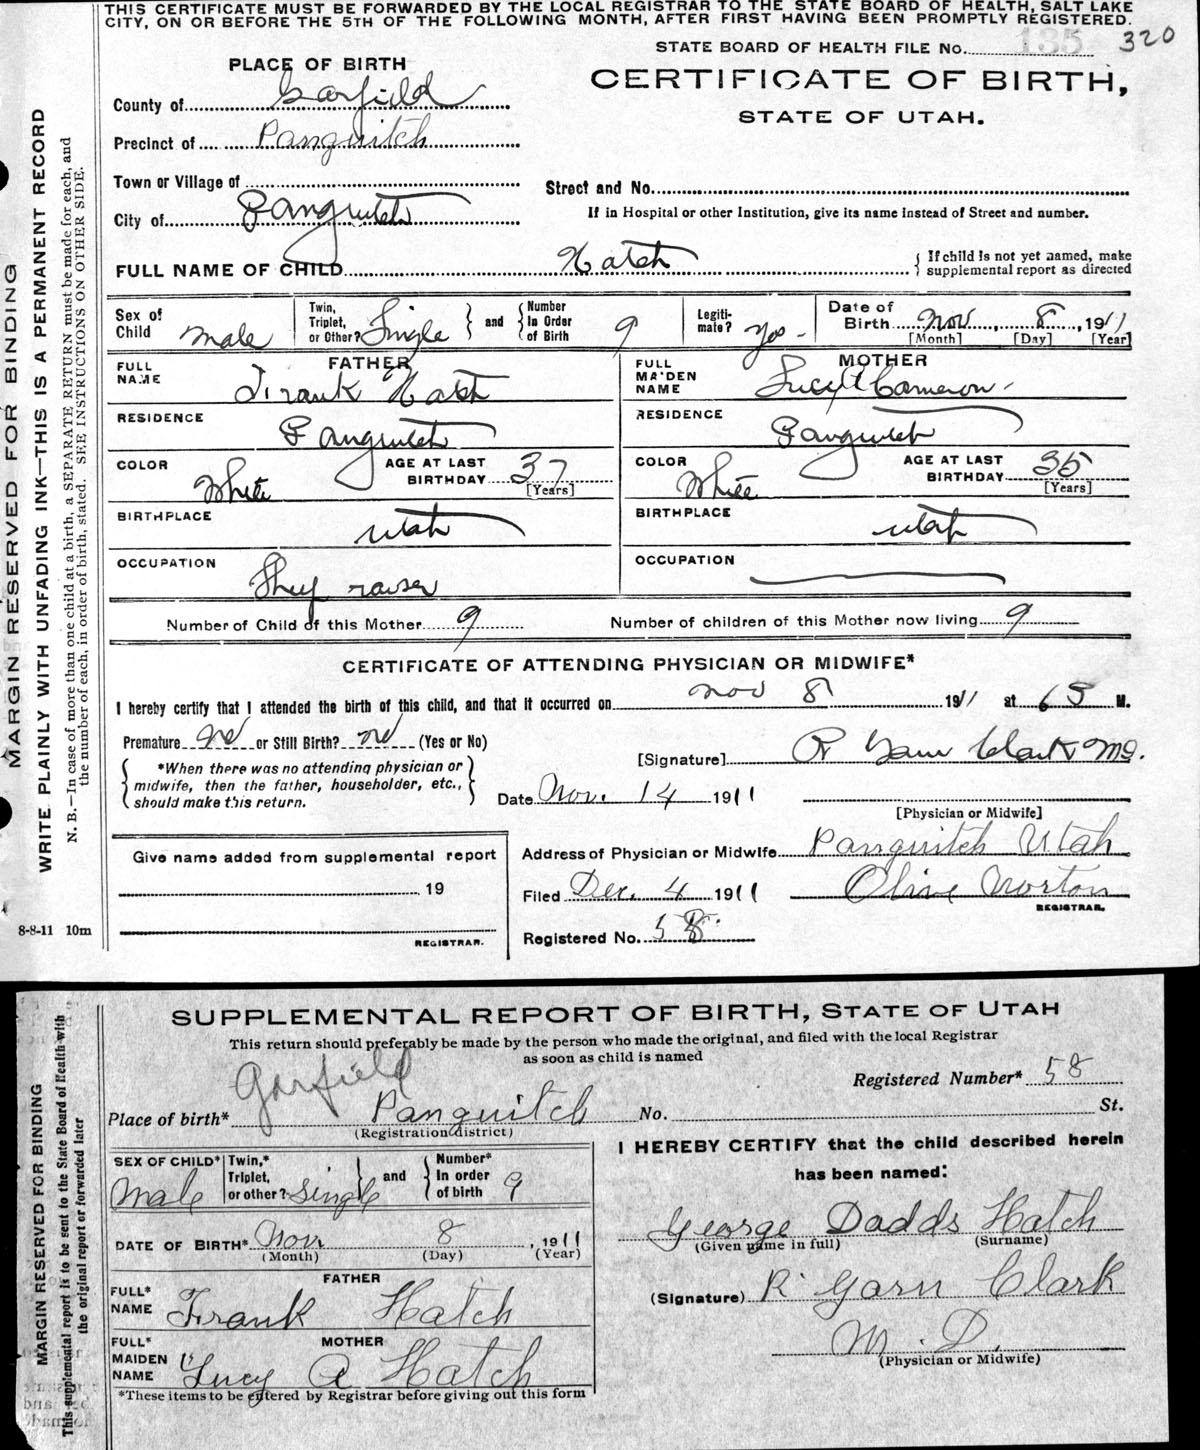 THIS CERTIFICATE MUST BE FORWARDED BY THE LOCAL REGISTRAR TO THE STATE BOARD OF HEALTH, SALT LAKE
CITY, ON OR BEFORE THE 5TH OF THE FOLLOWING MONTH, AFTER FIRST HAVING BEEN PROMPTLY REGISTERED.
STATE BOARD OF HEALTH FILE No. 135 320
PLACE OF BIRTH
CERTIFICATE OF BIRTH,
STATE OF UTAH.
County of Garfield
Precinct of Panguitch
Town or Village of
Street and No.
City of Panguitch
If in Hospital or other Institution, give its name instead of Street and number.
FULL NAME OF CHILD Hatch
{ If child is not yet named, make
supplemental report as directed
Sex of Child male
Twin, Triplet, or Other? Single } and { Number In Order of Birth 9
Legiti-mate? Yes-
Date of Birth Nov, 8, 1911
[Month] [Day] [Year]
FATHER
FULL NAME Frank Hatch
MOTHER
FULL MAIDEN NAME Lucy A Cameron-
RESIDENCE Panguitch
RESIDENCE Panguitch
COLOR White AGE AT LAST BIRTHDAY 37 [Years]
COLOR White AGE AT LAST BIRTHDAY 35 [Years]
BIRTHPLACE Utah
BIRTHPLACE Utah
OCCUPATION Shep raiser
OCCUPATION
Number of Child of this Mother 9 Number of children of this Mother now living 9
CERTIFICATE OF ATTENDING PHYSICIAN OR MIDWIFE*
I hereby certify that I attended the birth of this child, and that it occurred on Nov 8 1911 at 6 M.
Premature no or Still Birth? no (Yes or No)
[Signature] R Garn Clark MD.
{ *When there was no attending physician or
midwife, then the father, householder, etc.,
should make this return. }
Date Nov. 14 1911
[Physician or Midwife]
Give name added from supplemental report
Address of Physician or Midwife Panguitch Utah
19
Filed Dec. 4 1911 Olive Norton
REGISTRAR.
REGISTRAR.
Registered No. 58
8-8-11 10m
MARGIN RESERVED FOR BINDING
WRITE PLAINLY WITH UNFADING INK—THIS IS A PERMANENT RECORD
N. B.—In case of more than one child at a birth, a SEPARATE RETURN must be made for each, and
the number of each, in order of birth, stated. SEE INSTRUCTIONS ON OTHER SIDE.
SUPPLEMENTAL REPORT OF BIRTH, STATE OF UTAH
This return should preferably be made by the person who made the original, and filed with the local Registrar
as soon as child is named
Registered Number* 58
Garfield
Place of birth* Panguitch No. St.
(Registration district)
SEX OF CHILD* Male
Twin,* Triplet, or other? Single } and { Number* In order of birth 9
DATE OF BIRTH* Nov 8, 1911
(Month) (Day) (Year)
FATHER
FULL* NAME Frank Hatch
MOTHER
FULL* MAIDEN NAME Lucy A Hatch
*These items to be entered by Registrar before giving out this form
I HEREBY CERTIFY that the child described herein
has been named:
George Dodds Hatch
(Given name in full) (Surname)
(Signature) R. Garn Clark
M. D.
(Physician or Midwife)
MARGIN RESERVED FOR BINDING
This supplemental report is to be sent to the State Board of Health with
the original report or forwarded later